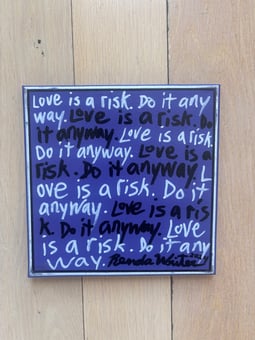 Love is a risk. Do it any
way. Love is a risk. Do
it anyway. Love is a risk.
Do it anyway. Love is a
risk. Do it anyway. L
ove is a risk. Do it
anyway. Love is a ris
k. Do it anyway. Love
is a risk. Do it any
way.